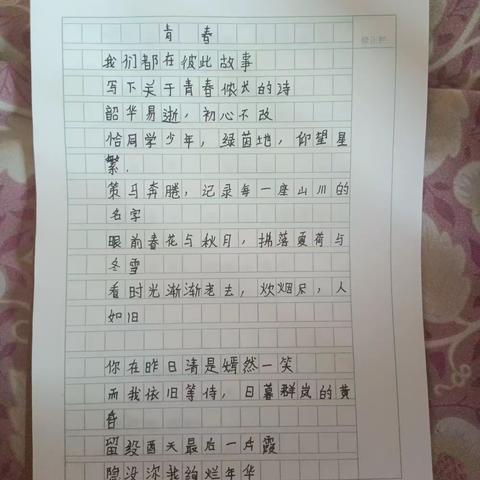 青春
我们都在彼此故事
写下关于青春倣长的诗
韶华易逝，初心不改
恰同学少年，绿茵地，仰望星
繁.
策马奔腾，记录每一座山川的
名字
眼前春花与秋月，拂落夏荷与
冬雪
看时光渐渐老去，炊烟尽，人
如旧
你在昨日清是嫣然一笑
而我依旧等待，日暮群岚的黄
昏
留
天最后一片霞
隐没你我绚烂年华